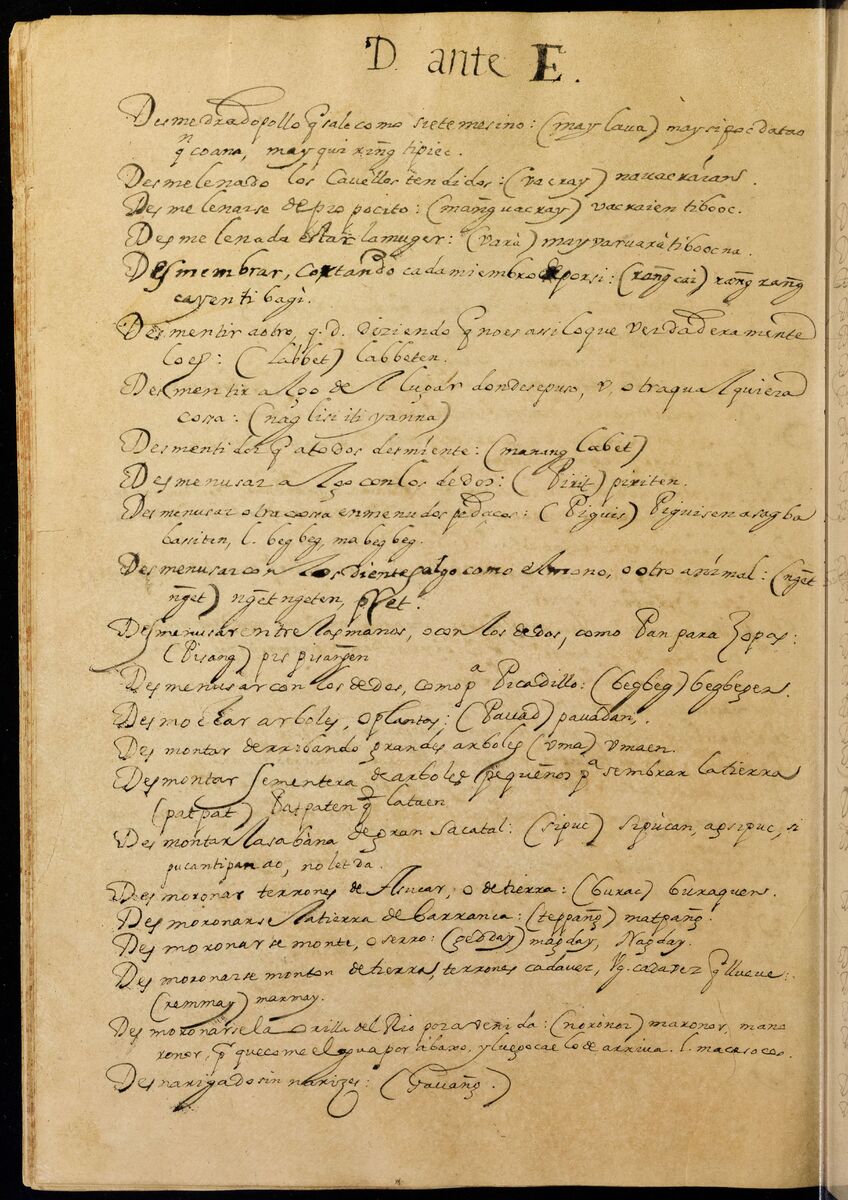 D. ante E.
Desmedrado pollo q̃ sale como sietemesino: (may laua) may sipoc datao
q̃ coana, may qui ring̃ tipiec.
Desmelenado los Cavellos tendidos: (vacray) navacráians.
Desmelenarse de propocito: (mang̃ vacray) vacraien tibooc.
Desmelenada estar la muger: (varà) may varuarà tiboocna.
Desmembrar, cortando cada miembro de porsi: (rang̃cai) rang̃ rang̃
cayen ti bagi.
Desmentir aotro, q. d. diziendo q̃ noes assi loque verdaderamente
loes: (labbet) labbeten.
Desmentir algo del lugar donde sepuso, v, otra qualquiera
cossa: (nag lisi iti yanna)
Desmentidor q̃ atodos desmiente: (manang labet)
Desmenusar algo con los dedos: (Pirit) piriten.
Desmenusar otra cossa en menudos pedaços: (Piguis) Piguisen asag ba
bassitin, l. begbeg, mabegbeg.
Desmenusar con los dientes algo como el mono, o otro animal: (ng̃et
ng̃et) ng̃et ngeten,
Desmenusar entre las manos, o con los dedos, como Pan para Zopas:
(Pisang) pis pisang̃en
Desmenusar con los dedos, como pᵃ Picadillo: (begbeg) begbegen.
Desmochar arboles, o plantas: (Pauad) pauadan,.
Desmontar derribando grandes arboles (vma) vmaen.
Desmontar sementera de arboles pequeños pᵃ sembrar la tierra
(patpat) Patpaten q̃ lataen
Desmontar la sabàna de gran sacatal: (sipuc) sipùcan, agsipuc, si
pucantipan ao, no let da.
Desmoronar terrones de Asucar, o de tierra: (burac) buraquen.
Desmoronarse la tierra de barranca: (teppang̃) matpang̃.
Desmoronarse monte, o serro: (gedday) magday, Nagday.
Desmoronarse monton de tierra, terrones cadavez, Vg. cadavez q̃ llueue:
(remmay) marmay.
Desmoronarse la Orilla del Rio por avenida: (noronor) maronor, mano
ronor, pᵗ quecome el agua por abaxo, y luego cae lo de arriva. l. macasoces.
Desnarigado sin narizes: (Gauang̃.)